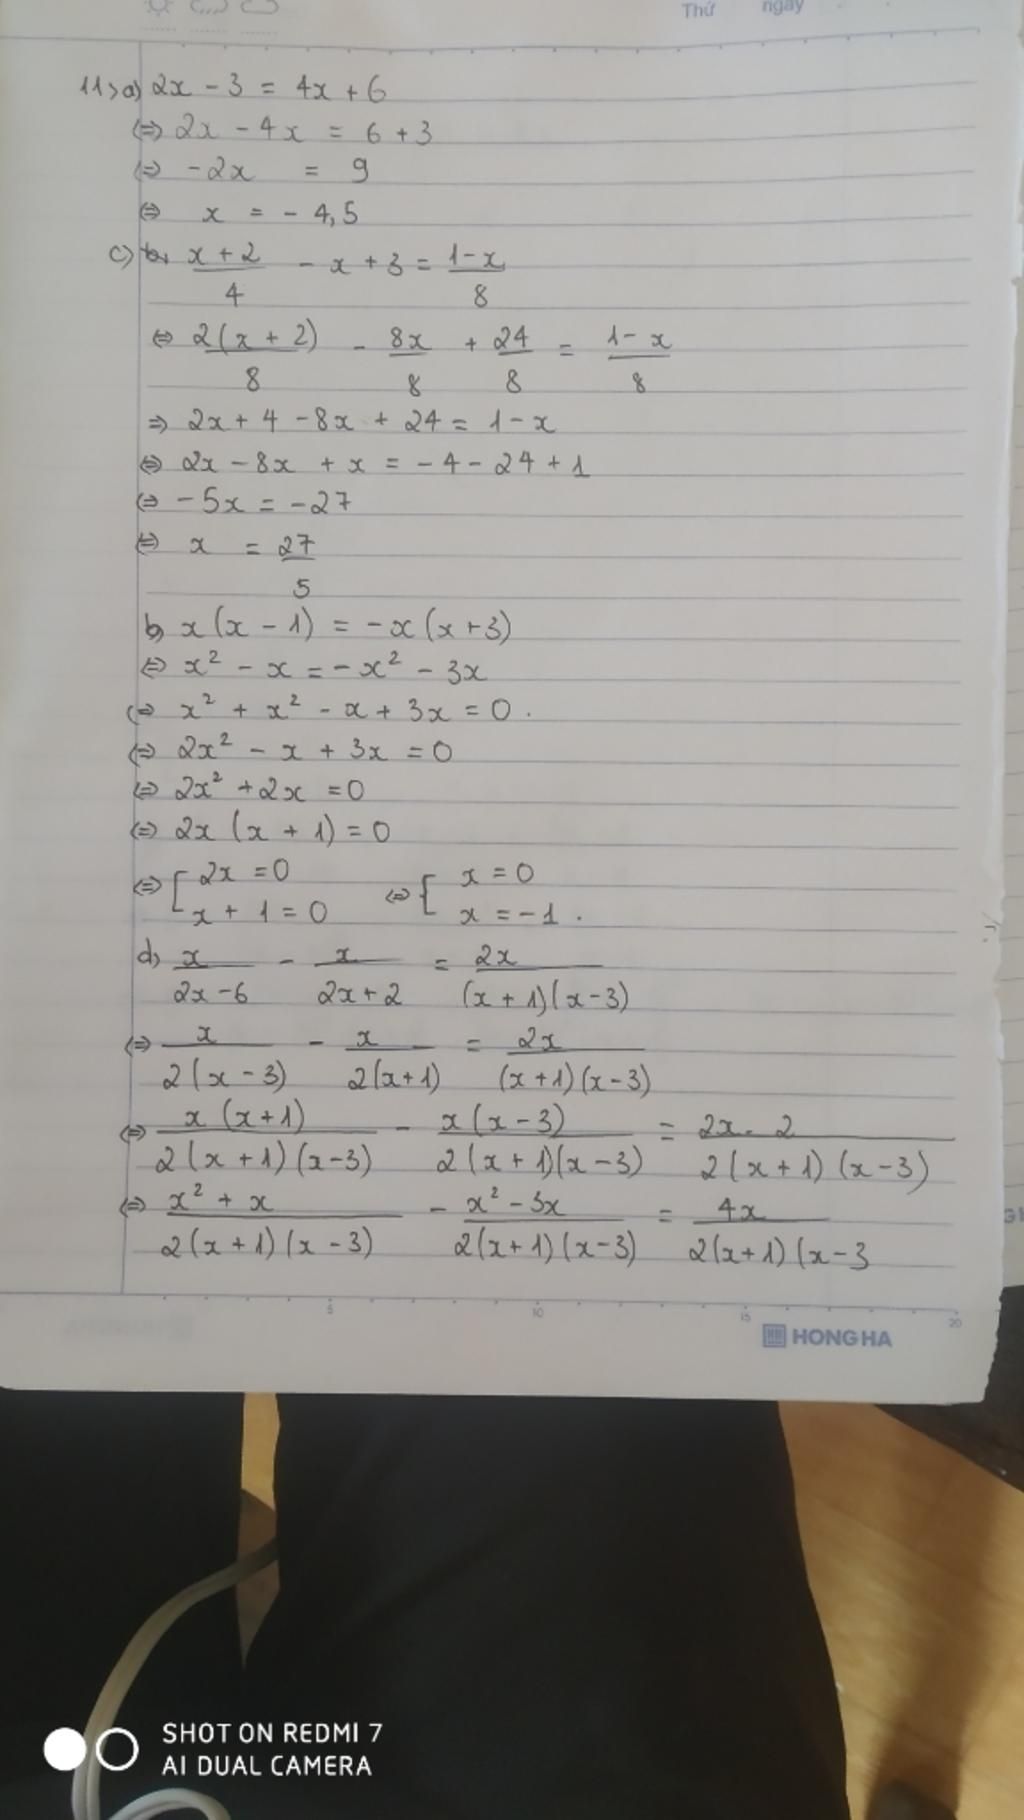 Thứ ngày
11>a) 2x - 3 = 4x + 6
<=> 2x - 4x = 6 + 3
<=> -2x = 9
<=> x = - 4,5
c) x + 2/4 - x + 3 = 1 - x/8
<=> 2(x + 2)/8 - 8x/8 + 24/8 = 1 - x/8
=> 2x + 4 - 8x + 24 = 1 - x
<=> 2x - 8x + x = - 4 - 24 + 1
<=> - 5x = - 27
<=> x = 27/5
b, x(x - 1) = -x(x + 3)
<=> x² - x = -x² - 3x
<=> x² + x² - x + 3x = 0 .
<=> 2x² - x + 3x = 0
<=> 2x² + 2x = 0
<=> 2x (x + 1) = 0
<=> [ 2x = 0 <=> { x = 0
x + 1 = 0 x = -1 .
d, x/2x - 6 - x/2x + 2 = 2x/(x + 1)(x - 3)
<=> x/2(x - 3) - x/2(x + 1) = 2x/(x + 1)(x - 3)
<=> x(x + 1)/2(x + 1)(x - 3) - x(x - 3)/2(x + 1)(x - 3) = 2x . 2/2(x + 1)(x - 3)
<=> x² + x/2(x + 1)(x - 3) - x² - 3x/2(x + 1)(x - 3) = 4x/2(x + 1)(x - 3
5 10 15 20
HONG HA
SHOT ON REDMI 7
AI DUAL CAMERA